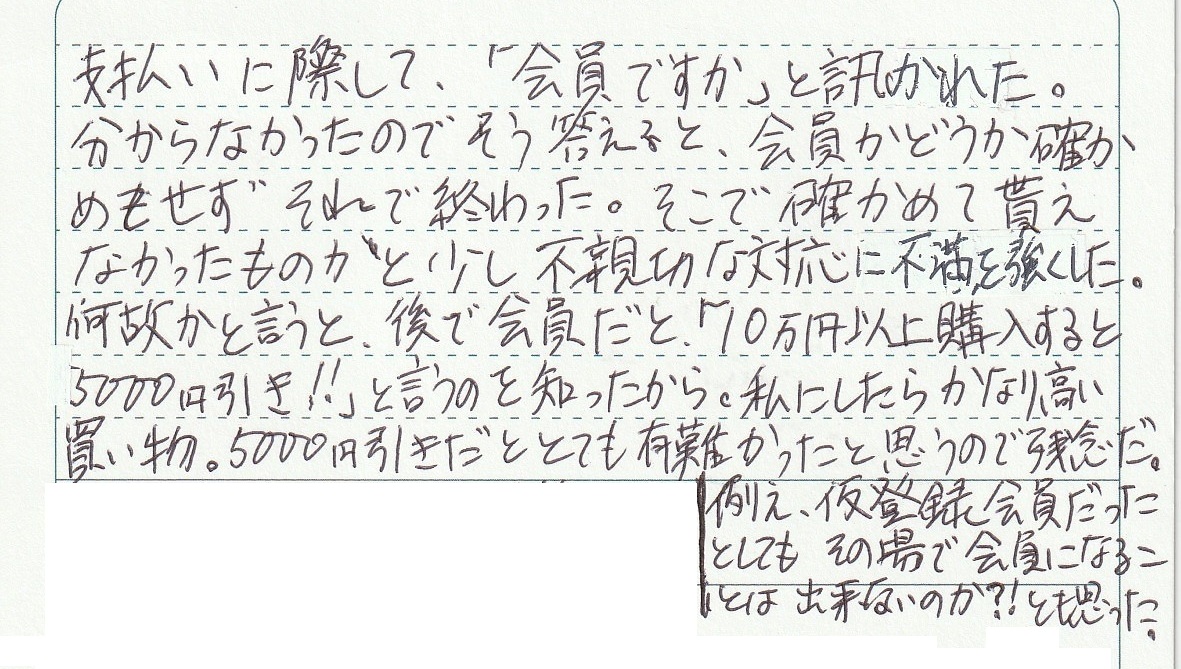 支払いに際して、「会員ですか」と訊かれた。
分からなかったのでそう答えると、会員かどうか確か
めもせずそれで終わった。そこで確かめて貰え
なかったものかと少し不親切な対応に不満を強くした。
何故かと言うと、後で会員だと、「10万円以上購入すると
5000円引き!!」と言うのを知ったから。私にしたらかなり高い
買い物。5000円引きだととても有難かったと思うので残念だ。
例え、仮登録会員だった
としてもその場で会員になるこ
とは出来ないのか?!とも思った。